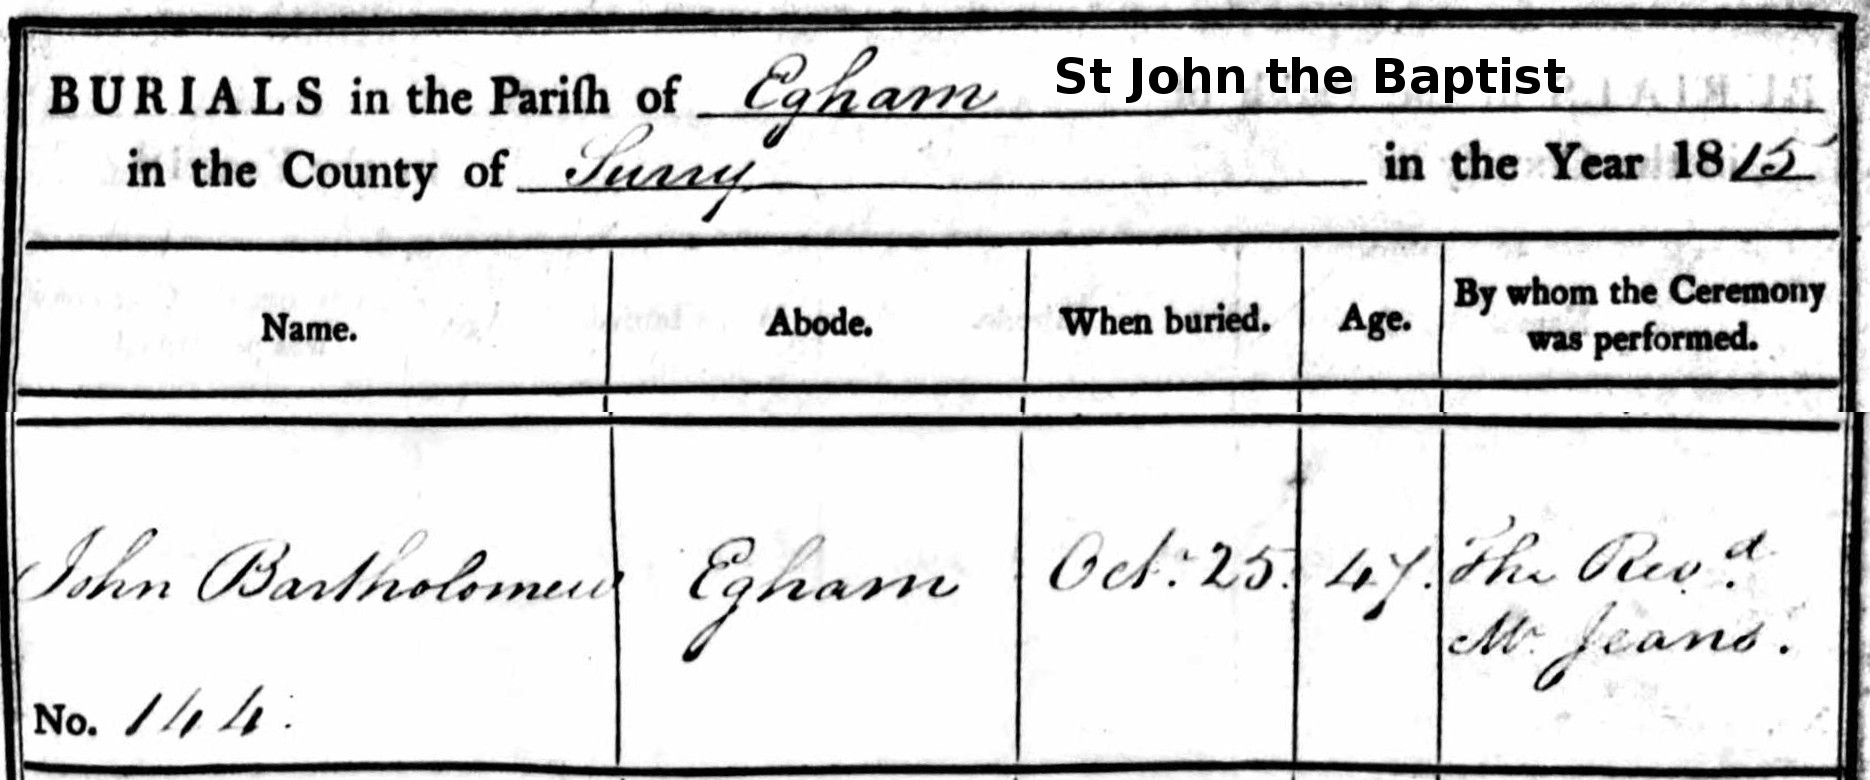 BURIALS in the Pariſh of Egham St John the Baptist
in the County of Surry in the Year 1815
Name. Abode. When buried. Age. By whom the Ceremony
was performed.
John Bartholomew Egham Oct.r 25. 47. The Rev.d
Mr. Jeans.
No. 144.